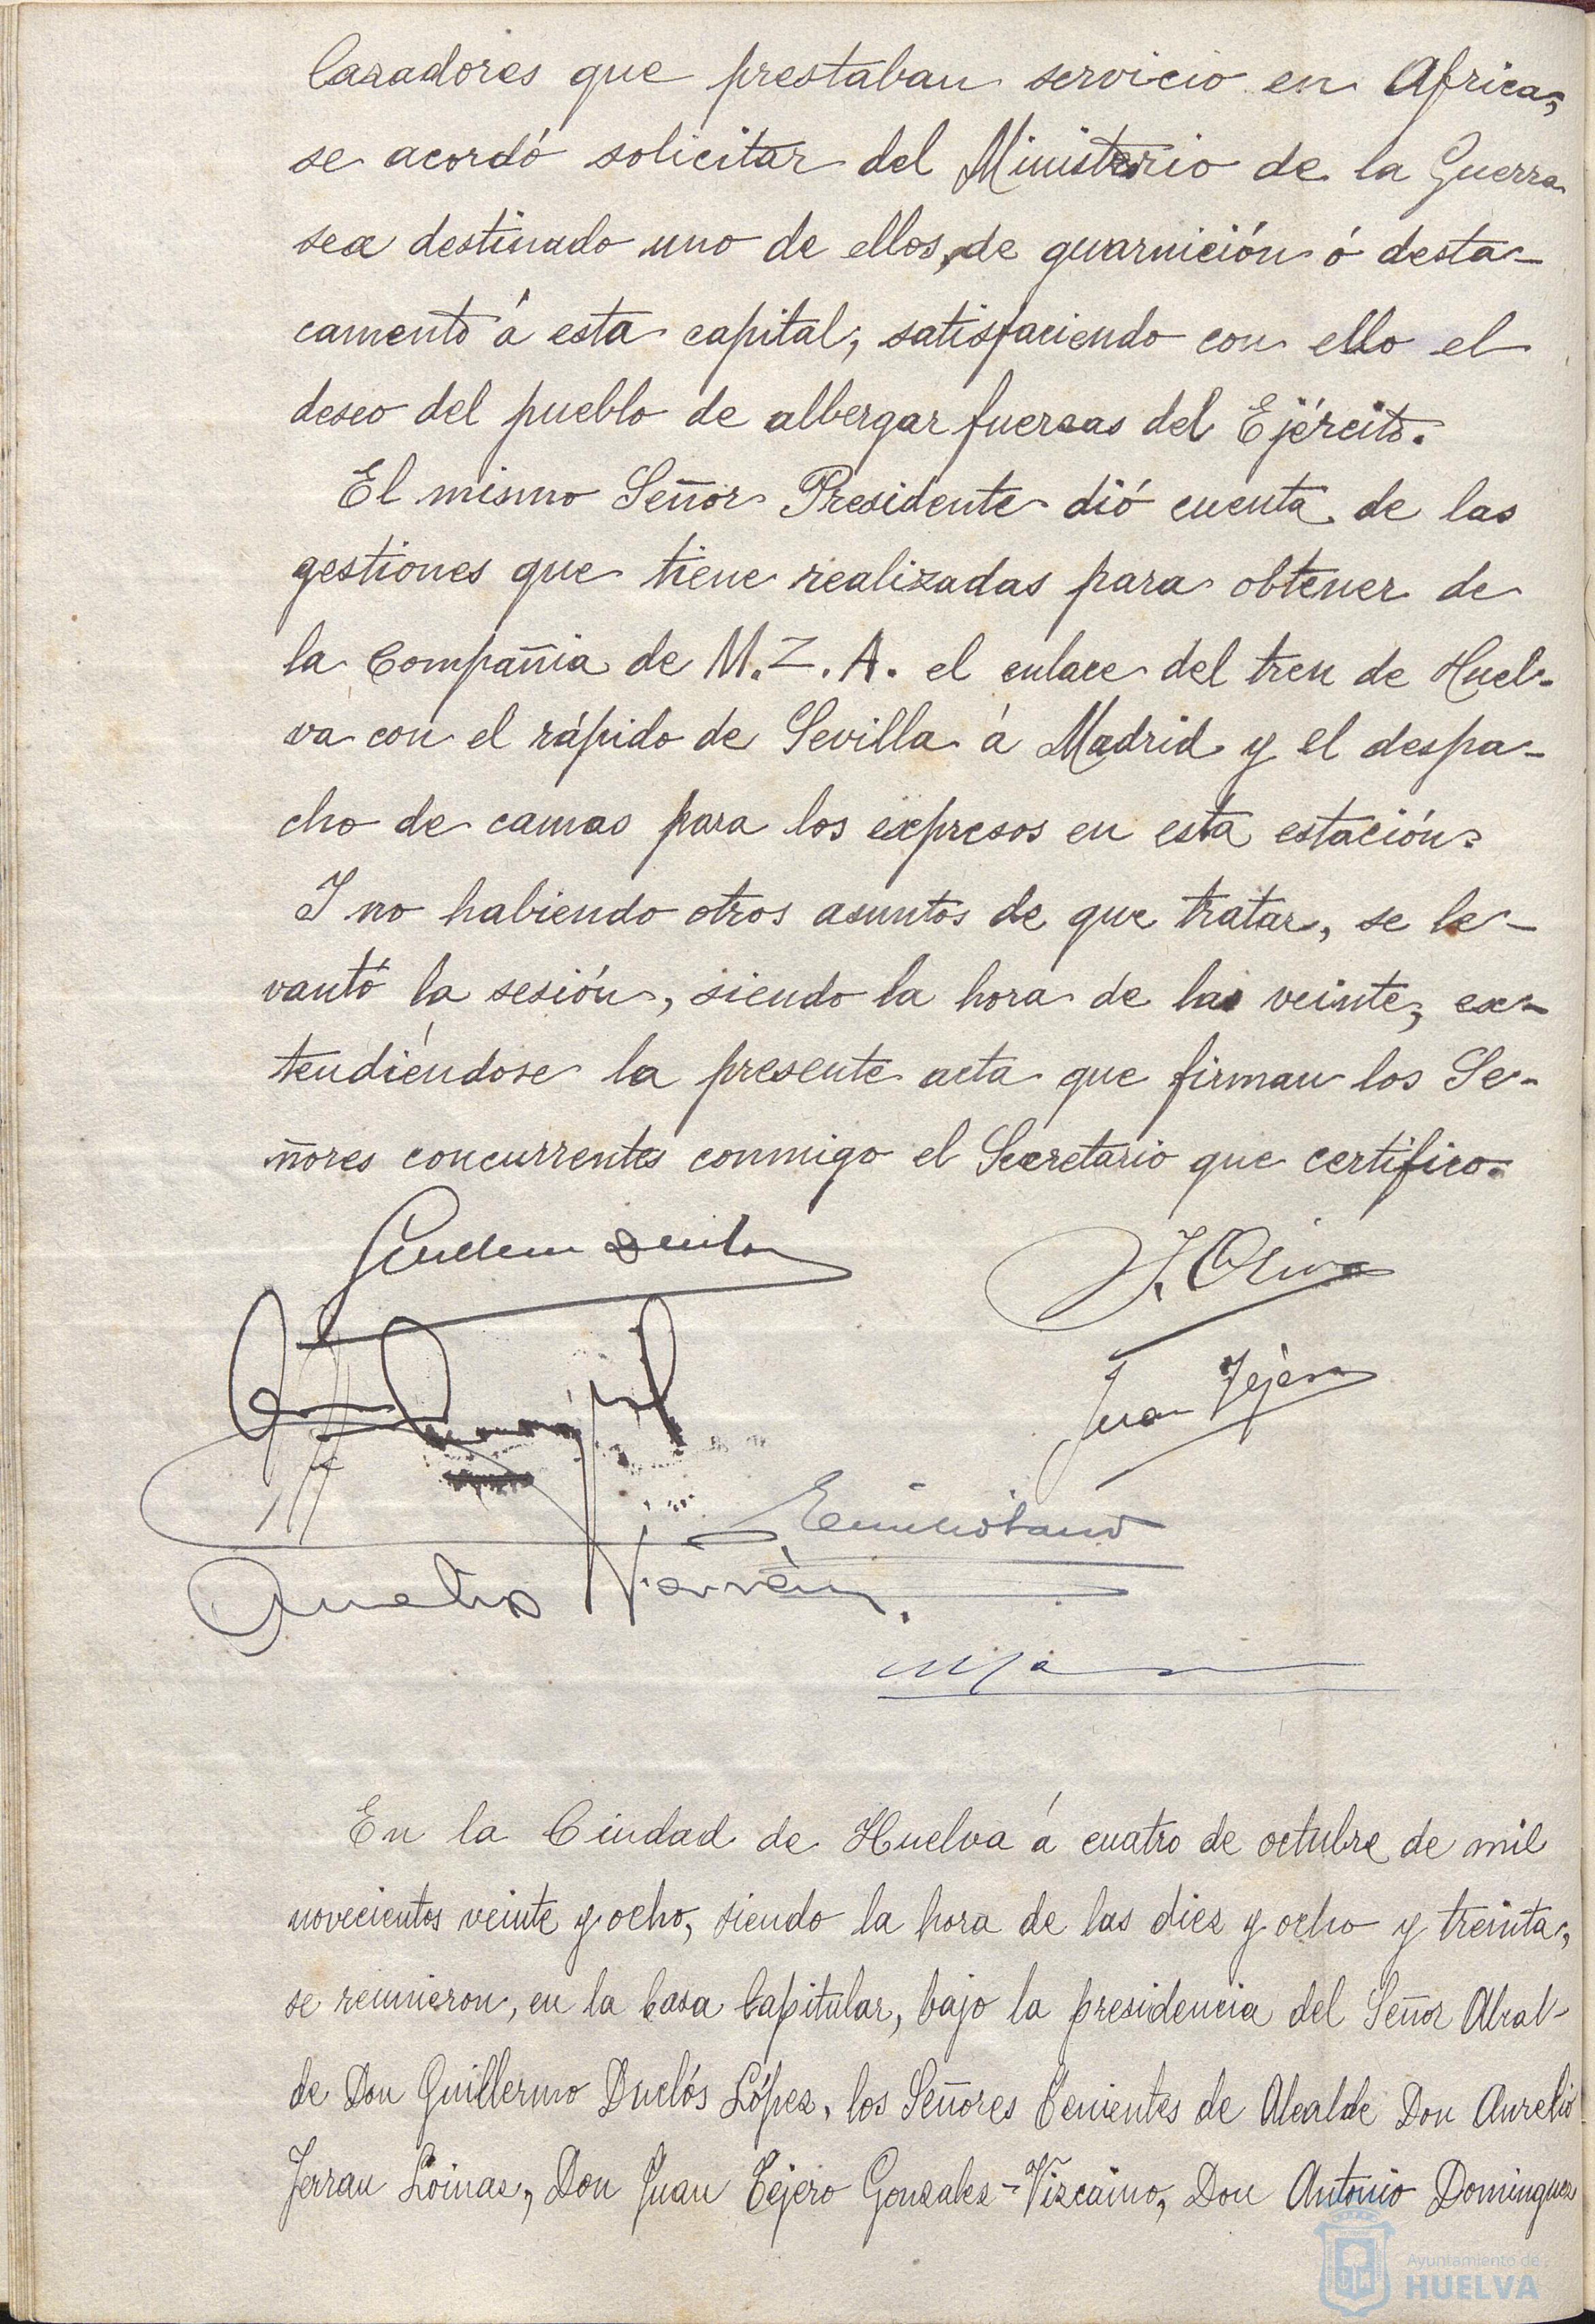 Cazadores que prestaban servicio en Africa,
se acordó solicitar del Ministerio de la Guerra
sea destinado uno de ellos, de guarnición ó desta-
camento á esta capital, satisfaciendo con ello el
deseo del pueblo de albergar fuerzas del Ejército.
El mismo Señor Presidente dió cuenta de las
gestiones que tiene realizadas para obtener de
la Compañia de M. Z. A. el enlace del tren de Huel-
va con el rápido de Sevilla á Madrid y el despa-
cho de camas para los expresos en esta estación.
Y no habiendo otros asuntos de que tratar, se le-
vantó la sesión, siendo la hora de las veinte, ex-
tendiéndose la presente acta que firman los Se-
ñores concurrentes conmigo el Secretario que certifico.
J. Oliva
Juan Tejero
Aurelio Jerrán
En la Ciudad de Huelva á cuatro de octubre de mil
novecientos veinte y ocho, siendo la hora de las diez y ocho y treinta,
se reunieron, en la Casa Capitular, bajo la presidencia del Señor Alcal-
de Don Guillermo Duclós López, los Señores Tenientes de Alcalde Don Aurelio
Jerran Loinaz, Don Juan Tejero Gonzalez-Vizcaino, Don Antonio Dominguez
Ayuntamiento de
HUELVA